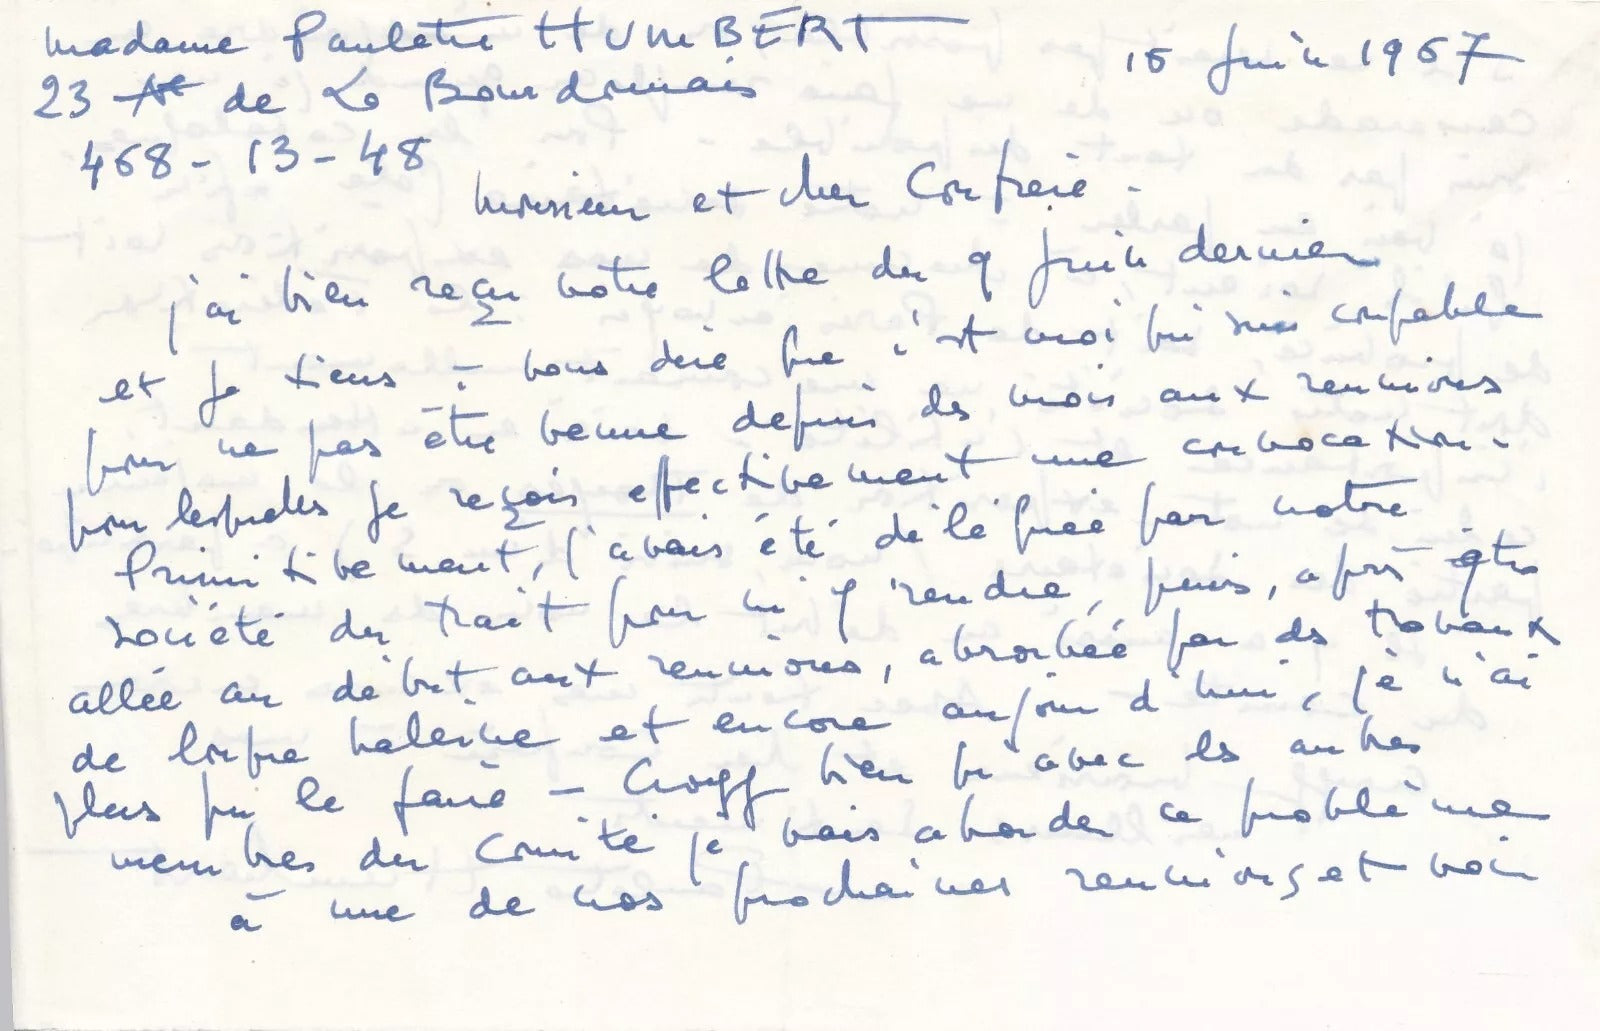 Madame Paulette HUMBERT
15 Juin 1967
23 Ave de La Bourdonnais
468-13-48
Monsieur et cher Confrère -
j'ai bien reçu votre lettre du 9 Juin dernier
et je tiens à vous dire que c'est moi qui suis coupable
pour ne pas être venue depuis des mois aux reunions
pour lesquelles je reçois effectivement une convocation -
Primitivement, j'avais été déléguée par notre
société du Trait pour m'y rendre, puis, après être
allée au début aux reunions, absorbée par des travaux
de longue haleine et encore aujourd'hui, je n'ai
plus pu le faire - Croyez bien qu'avec les autres
membres du Comité je vais aborder ce problème
à une de nos prochaines reunions et voir